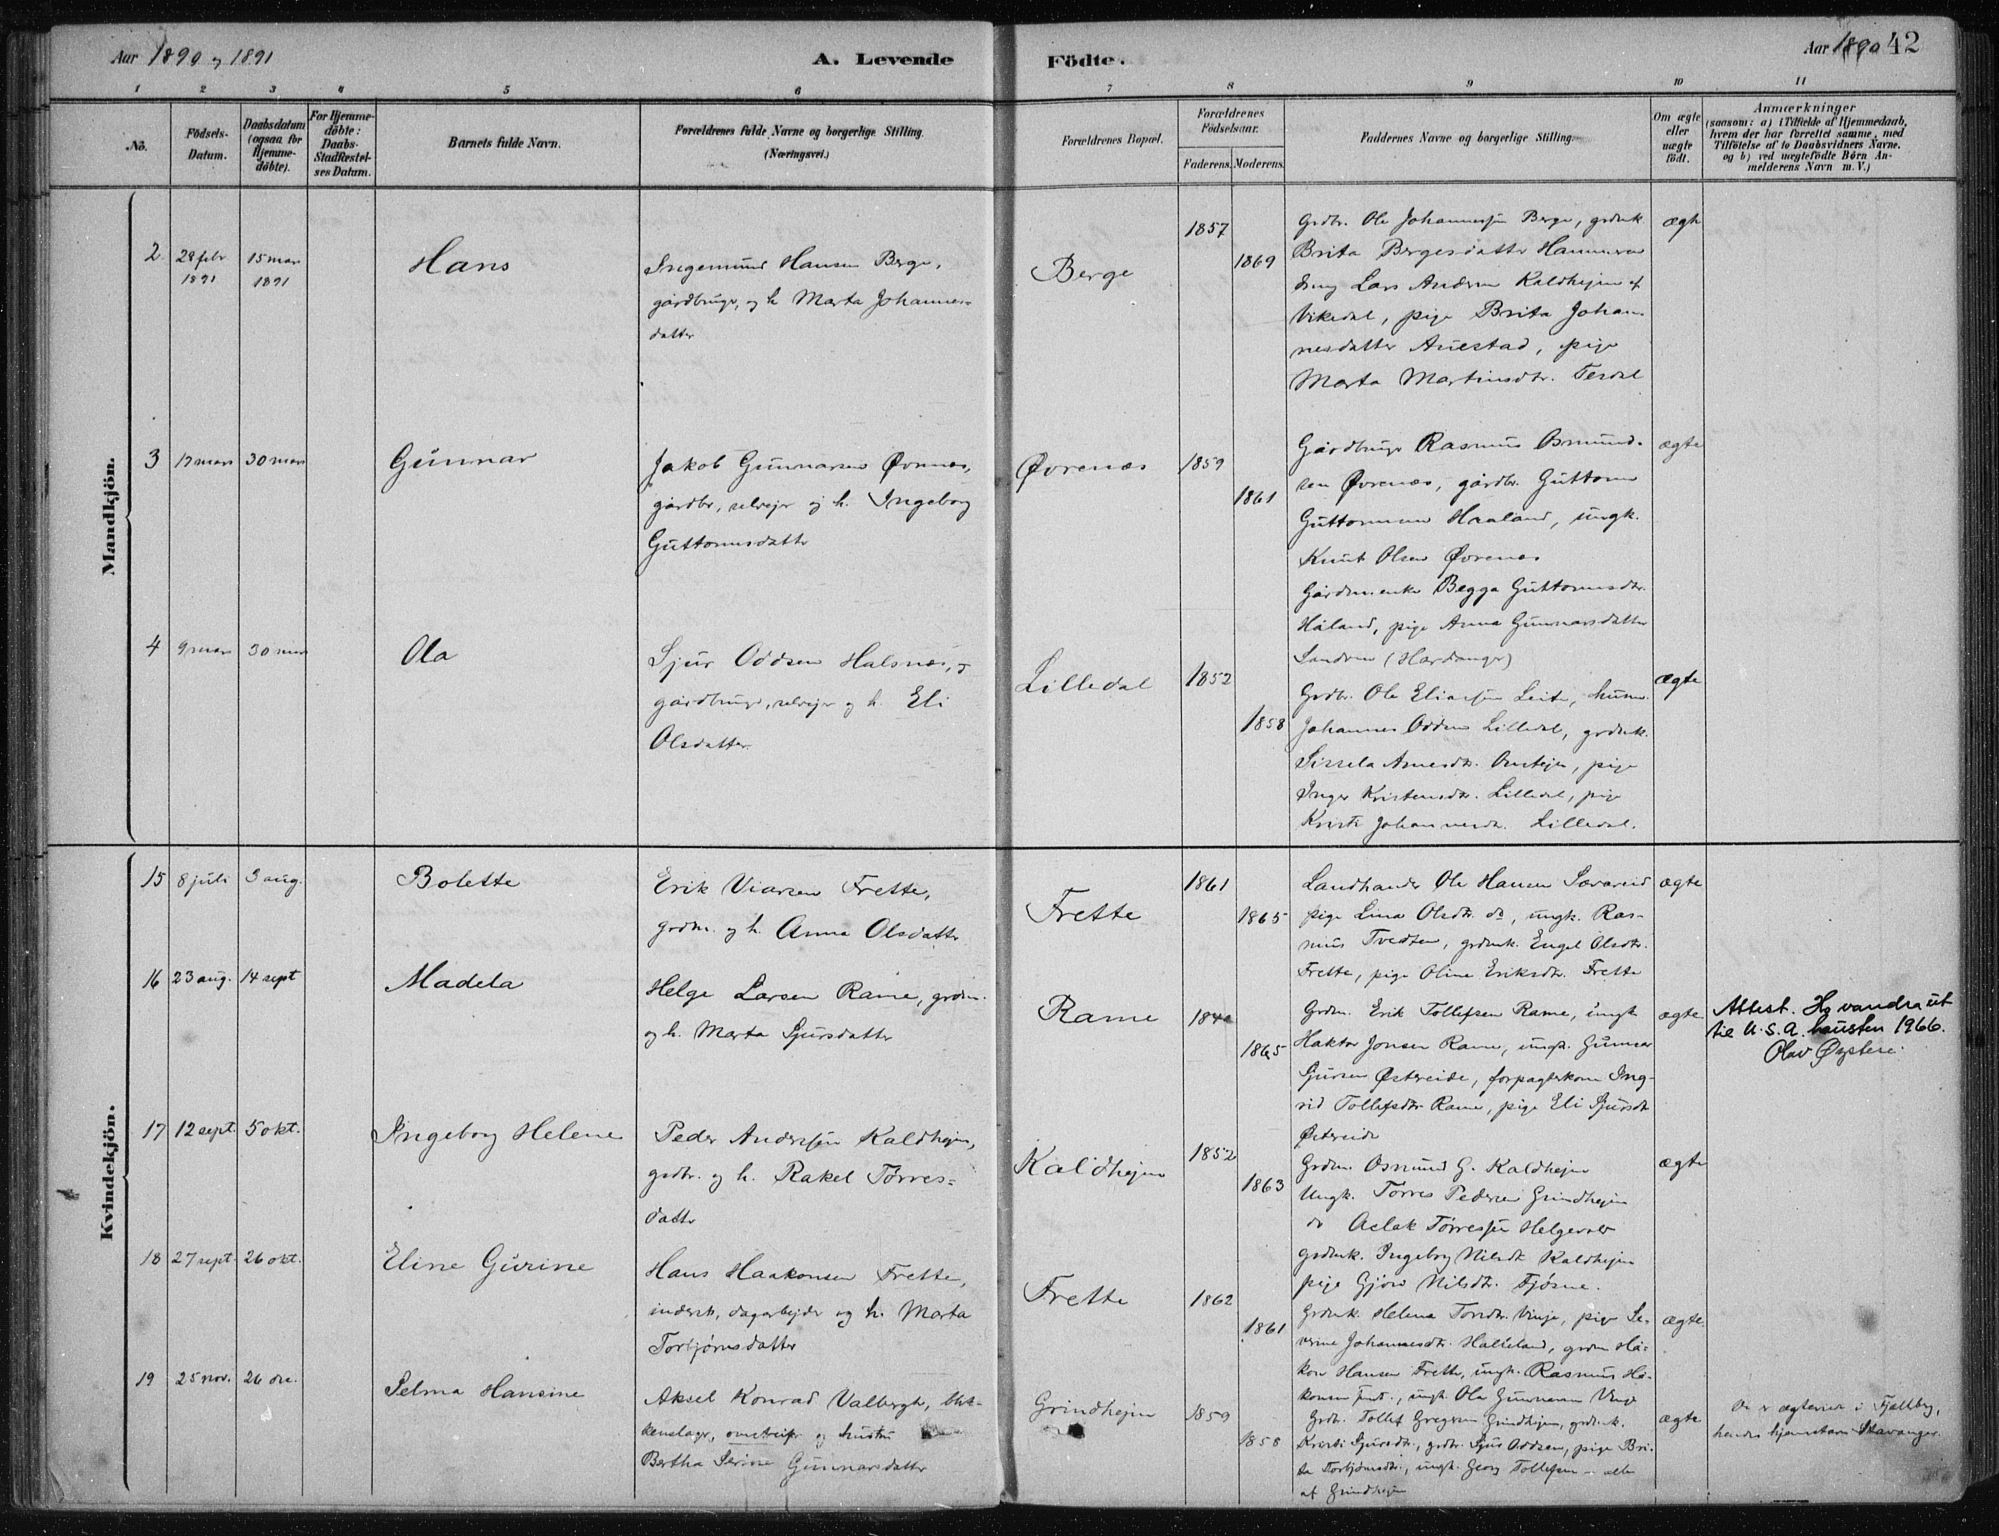 Aar 1890 og 1891
A. Levende
Födte.
Aar 1890 42
1 2 3 4 5 6 7 8 9 10 11
No.
Födsels-
Datum.
Daabsdatum
(ogsaa for
Hjemme-
döbte).
For Hjemme-
döbte:
Daabs-
Stadfæstel-
ses Datum.
Barnets fulde Navn.
Forældrenes fulde Navne og borgerlige Stilling.
(Næringsvei.)
Forældrenes Bopæl.
Forældrenes
Födselsaar.
Faderens. Moderens.
Faddernes Navne og borgerlige Stilling.
Om ægte
eller
uægte
födt.
Anmærkninger
(saasom: a) i Tilfælde af Hjemmedaab,
hvem der har forrettet samme, med
Tilföielse af to Daabsvidners Navne.
og b) ved uægtefödte Börn An-
melderens Navn m. V.)
Mandkjön.
2 28 febr
1891
15 mars
1891
Hans
Ingemund Hansen Berge,
gårdbruger, og h. Marta Johannes-
datter
Berge
1857
1869
Grdbr. Ole Johannessen Berge, grdmk
Brita Bergesdatter
Lars Andersen Kaldhejen af
Vikedal, pige Brita Johan-
nesdatter Auestad, pige
Marta Martinsdtr. Tesdal
ægte
3 17 mars 30 mars
Gunnar
Jakob Gunnarsen Øvrenæs,
gårdbr, selvejer og h. Ingeborg
Guttormsdatter
Øvrenæs
1859
1861
Gårdbruger Rasmus Osmund-
sen Øvrenæs, gårdbr. Guttorm
Guttormsen Haaland, ungk.
Knut Olsen Øvrenæs
Gårdmenke Begga Guttormsdtr.
Håland, pige Anna Gunnarsdatter
Sandven (Hardanger)
ægte
4 9 mars 30 mars
Ola
Sjur Oddsen Halsnæs,
gårdbruger, selvejer og h. Eli
Olsdatter
Lilledal
1852
1858
Grdbr. Ole Eliassen Leite, husm.
Johannes Oddsen Lilledal, grdmk.
Sissela Arnesdtr. pige
Inger Kristensdtr. Lilledal, pige
Kristi Johannesdtr. Lilledal.
ægte
Kvindekjön.
15 8 juli 3 aug.
Bolette
Erik Viarsen Frette,
grdm. og h. Anna Olsdatter
Frette
1861
1865
Landhandler Ole Hansen Sævareid
pige Lina Olsdtr. do, ungk. Ras-
mus Tvedten, grdmk. Engel Olsdtr.
Frette, pige Oline Eriksdtr. Frette
ægte
16 23 aug. 14 sept
Madela
Helge Larsen Rame, grdm.
og h. Marta Sjursdatter
Rame
1865
Grdm. Erik Tollefsen Rame, ungk
Haktor Jonsen Rame, ungk. Gunnar
Sjursen Østereide, forpagterkone Ing-
rid Tollefsdtr Rame, pige Eli Sjursdt
Østereide
ægte
Attest. Ho vandra ut
til U.S.A. hausten 1966.
Olav
17 12 sept. 5 okt.
Ingeborg Helene
Peder Anderssen Kaldhejen,
grdbr. og h. Rakel Tørres-
datter
Kaldhejen
1852
1863
Grdm. Osmund G. Kaldhejen
Ungk. Tørres Pedersen Grindhejen
do Aslak Tørressen
grdmk. Ingeborg Nilsdt Kaldhejen
pige Gjøri Nilsdtr. Fjøsne.
ægte
18 27 sept 26 okt.
Eline Gurine
Hans Haakonsen Frette,
inderst, dagarbejder og h. Marta
Torbjørnsdatter
Frette
1862
1861
Grdmk. Helena Torsdtr. Vinje, pige Se-
verine Johannesdtr. Halleland, grdm Hå-
kon Hansen Frette, ungk. Rasmus Hå-
konsen ungk. Ola Gunnarsen Vinje
ægte
19 25 nov. 26 de.
Selma Hansine
Aksel Konrad Valbergh, blik-
kenslager, omstreifer og hustru
Bertha Serine Gunnarsdatter
Grindhejen
1859
1858
Grdbr. Tollef Gregersen Grindhejen, grdmk.
Kristi Sjursdtr., grdbr. Sjur Oddsen, pige Bri-
ta Torbjørnsdtr., ungk. Georg Tollefsen – alle
af Grindhejen
ægte
De er ægteviet i Fjellberg,
hendes hjemstavn Stavanger.